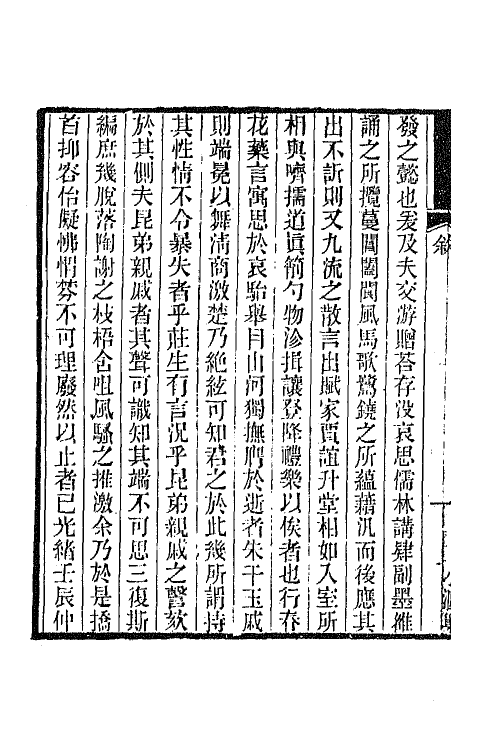 發之懿也爰及夫交游贈荅存没哀思儒林講肄副墨雒
誦之所攬蔓閶闔閬風馬歌驚鐃之所蘊藉汎而後應其
出不訢則又九流之散言出賦家賈誼升堂相如入室所
相與嚌擩道眞箾勺物沴揖讓登降禮樂以俟者也行春
花藥言寓思於哀駘舉目山河獨撫膺於逝者朱干玉戚
則端冕以舞淸商激楚乃絶絃可知君之於此幾所謂持
其性情不令暴失者乎莊生有言況乎昆弟親戚之謦欬
於其側夫昆弟親戚者其聲可識知其端不可思三復斯
編庶幾脫落陶謝之枝梧含咀風騷之推激余乃於是撟
首抑容佁儗怫悁棼不可理廢然以止者已光緒壬辰仲
敘